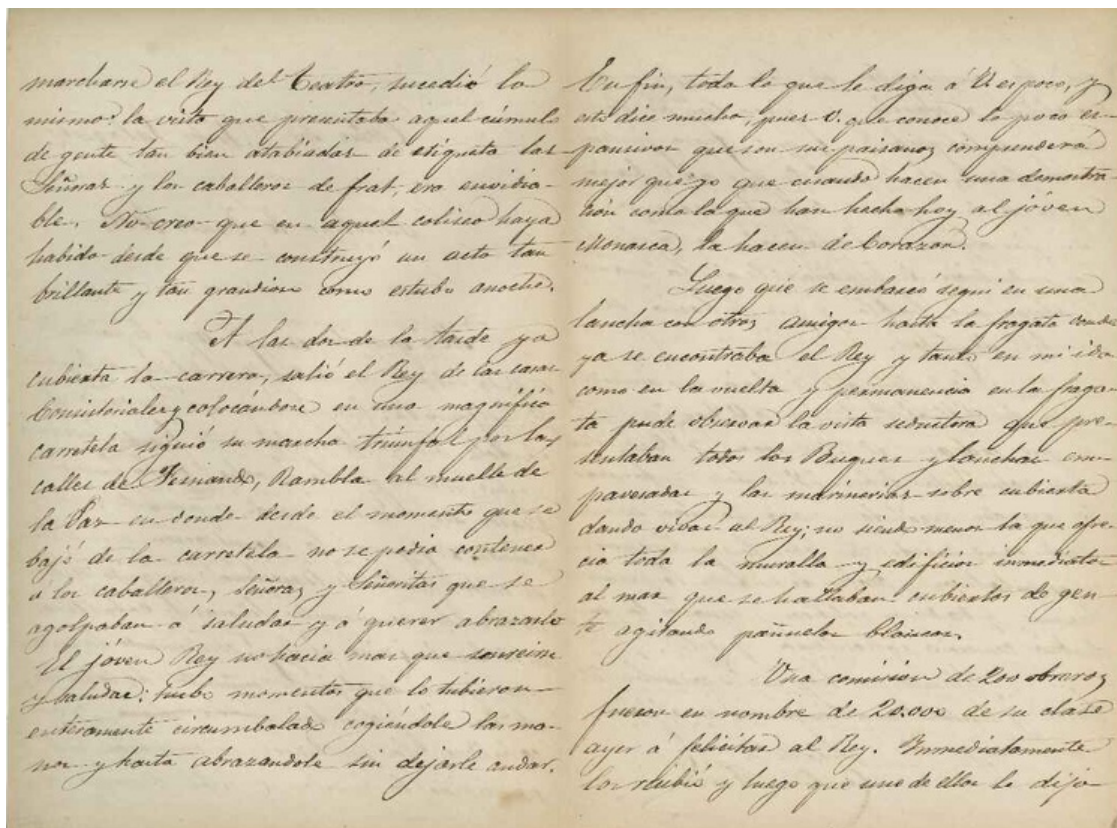 marcharse el Rey del Teatro, sucedió lo
mismo: la vista que presentaba aquel cúmulo
de gente tan bien atabiadas de etiqueta las
Señoras y los caballeros de frat, era envidia-
ble. No creo que en aquel coliseo haya
habido desde que se construyó un acto tan
brillante y tan grandioso como estubo anoche.
A las dos de la tarde ya
cubierta la carrera, salió el Rey de las casas
Consistoriales y colocándose en una magnífica
carretela siguió su marcha triunfal por las
calles de Fernando, Rambla al muelle de
la Paz en donde desde el momento que se
bajó de la carretela no se podia contener
a los caballeros, Señoras y Señoritas que se
agolpaban á saludar y á querer abrazarle
El jóven Rey no hacia mas que sonreirse
y saludar: hubo momentos que lo tubieron
enteramente circumbalado cogiéndole las ma-
nos y hasta abrazandole sin dejarle andar.
En fin, todo lo que le diga á V. es poco, y
esto dice mucho, pues V. que conoce lo poco es-
pansivos que son mis paisanos comprenderá
mejor que yo que cuando hacen una demostra-
ción como la que han hecho hoy al jóven
Monarca, la hacen de Corazon.
Luego que se embarcó seguí en una
lancha con otros amigos hasta la fragata donde
ya se encontraba el Rey y tanto en mi ida
como en la vuelta y permanencia en la fraga-
ta pude observar la vista seductora que pre-
sentaban todos los Buques y lanchas em-
pavesadas y las marinerias sobre cubierta
dando vivas al Rey; no siendo menor la que ofre-
cia toda la muralla y edificios inmediatos
al mar que se hallaban cubiertos de gen-
te agitando pañuelos blancos.
Una comision de 200 obreros
fueron en nombre de 20.000 de su clase
ayer á felicitar al Rey. Inmediatamente
los recibió y luego que uno de ellos le dijo